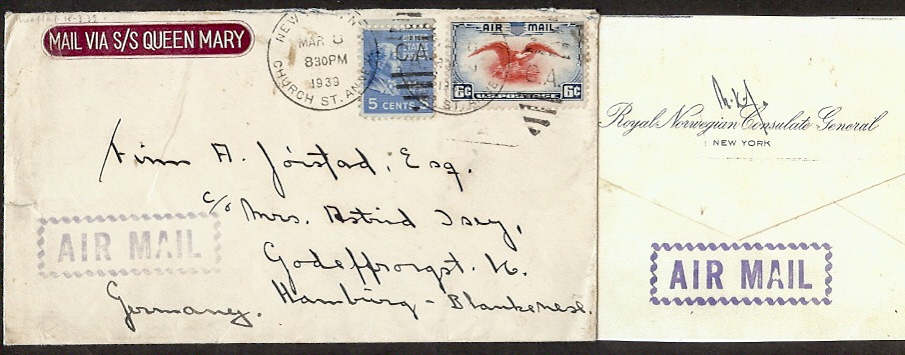 MAIL VIA S/S QUEEN MARY
NEW
MAR 8
830PM
1939
CHURCH ST. ANNEX
5 CENTS 5
AIR MAIL
6¢ U.S. POSTAGE 6¢
C.A.
ST.
Finn A. Jöistad, Esq.
c/o Mrs. Astrid Isey,
Godeffroygst. 16.
Hamburg - Blankenese.
Germany.
AIR MAIL
Royal Norwegian Consulate General
NEW YORK
AIR MAIL